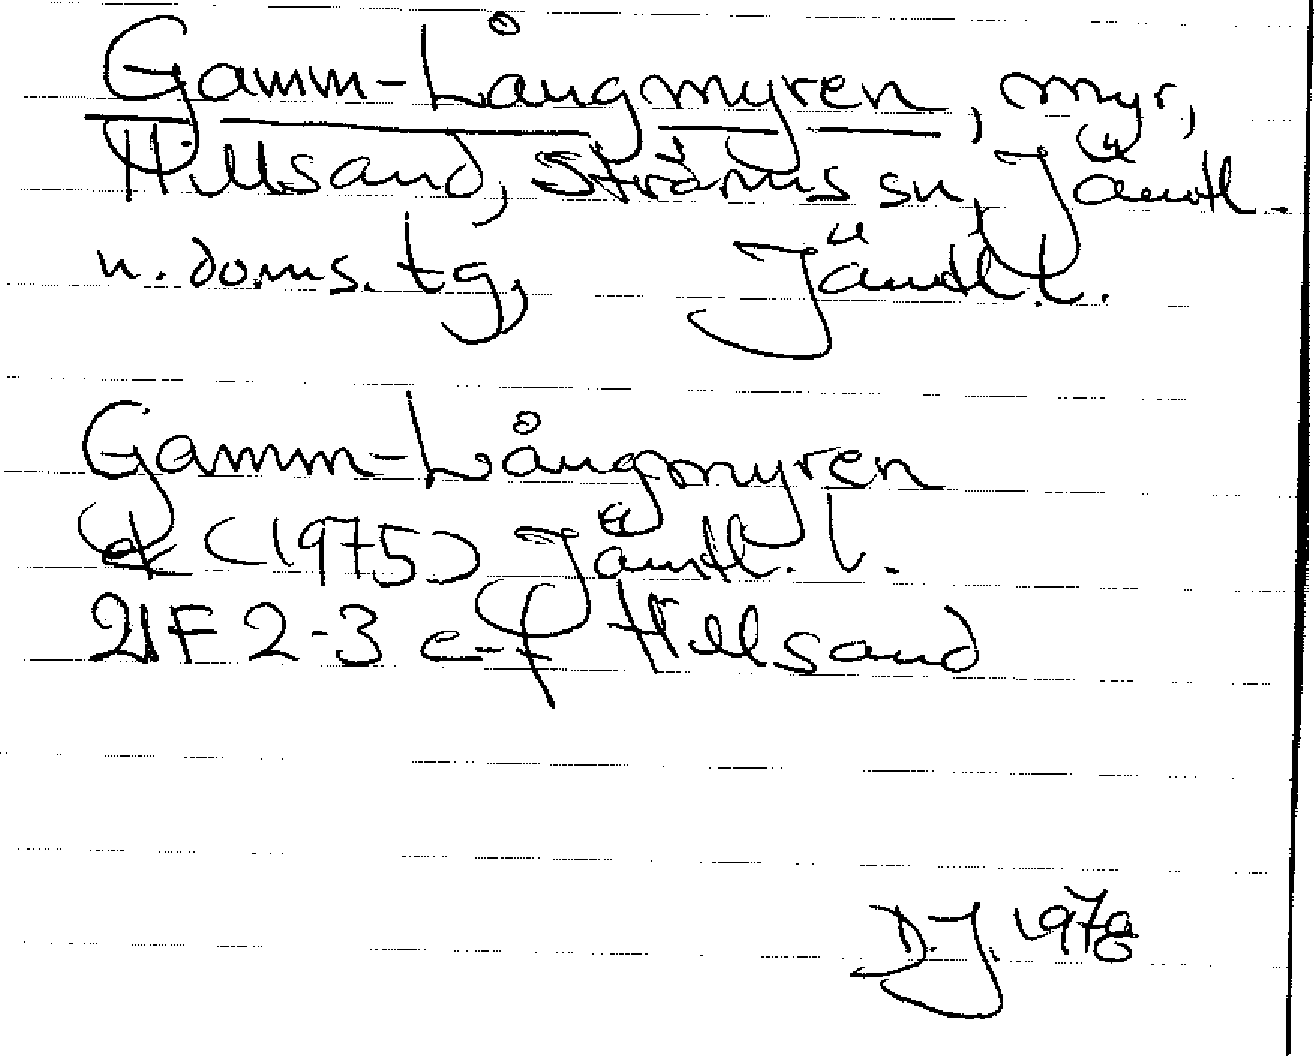 Gamm-Långmyren, myr,
Hillsand, Ströms sn, Jämtl.
n. doms. tg, Jämtl. l.
Gamm-Långmyren
ek (1975) Jämtl. l.
21F 2-3 e-f Hillsand
D.J. 1978